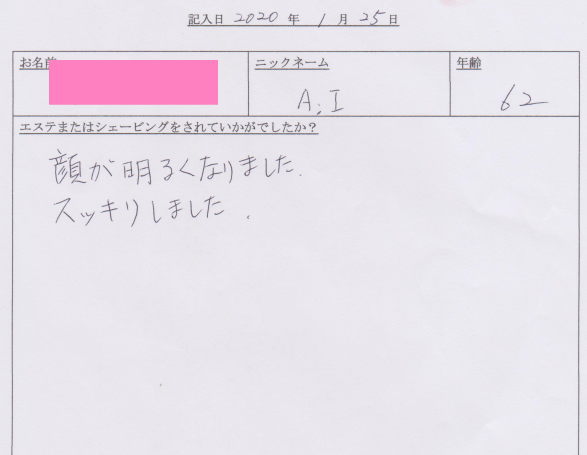 記入日 2020 年 1 月 25 日
お名前 ニックネーム 年齢
A.I 62
エステまたはシェービングをされていかがでしたか？
顔が明るくなりました.
スッキリしました.